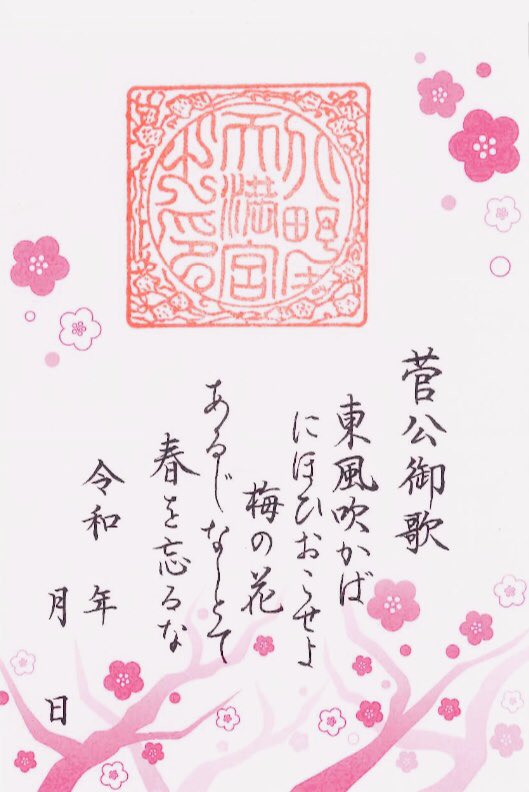 天満宮
菅公御歌
東風吹かば
にほひおこせよ
梅の花
あるじなしとて
春を忘るな
令和 年
月 日